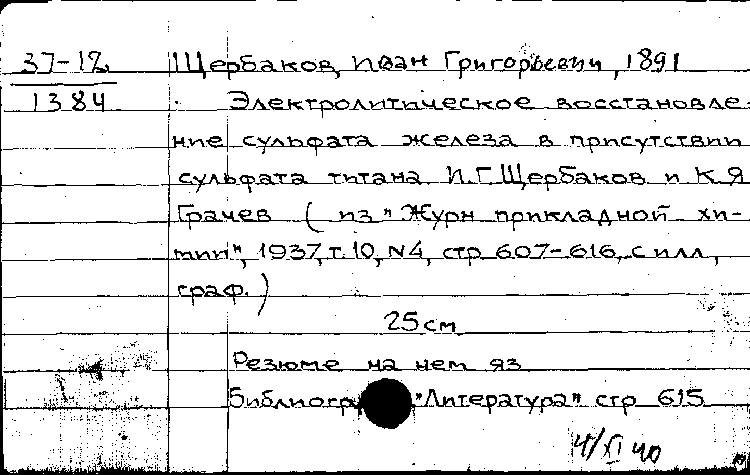 37-12 Щербаков, Иван Григорьевич, 1891
1384 Электролитическое восстановле-
ние сульфата железа в присутствии
сульфата титана. И.Г. Щербаков и К.Я
Грачев (из "Журн прикладной хи-
мии", 1937, т. 10, N4, стр 607-616, с илл,
граф.)
25 см
Резюме на нем яз
Библиогр "Литература" стр 615
4/XI 40